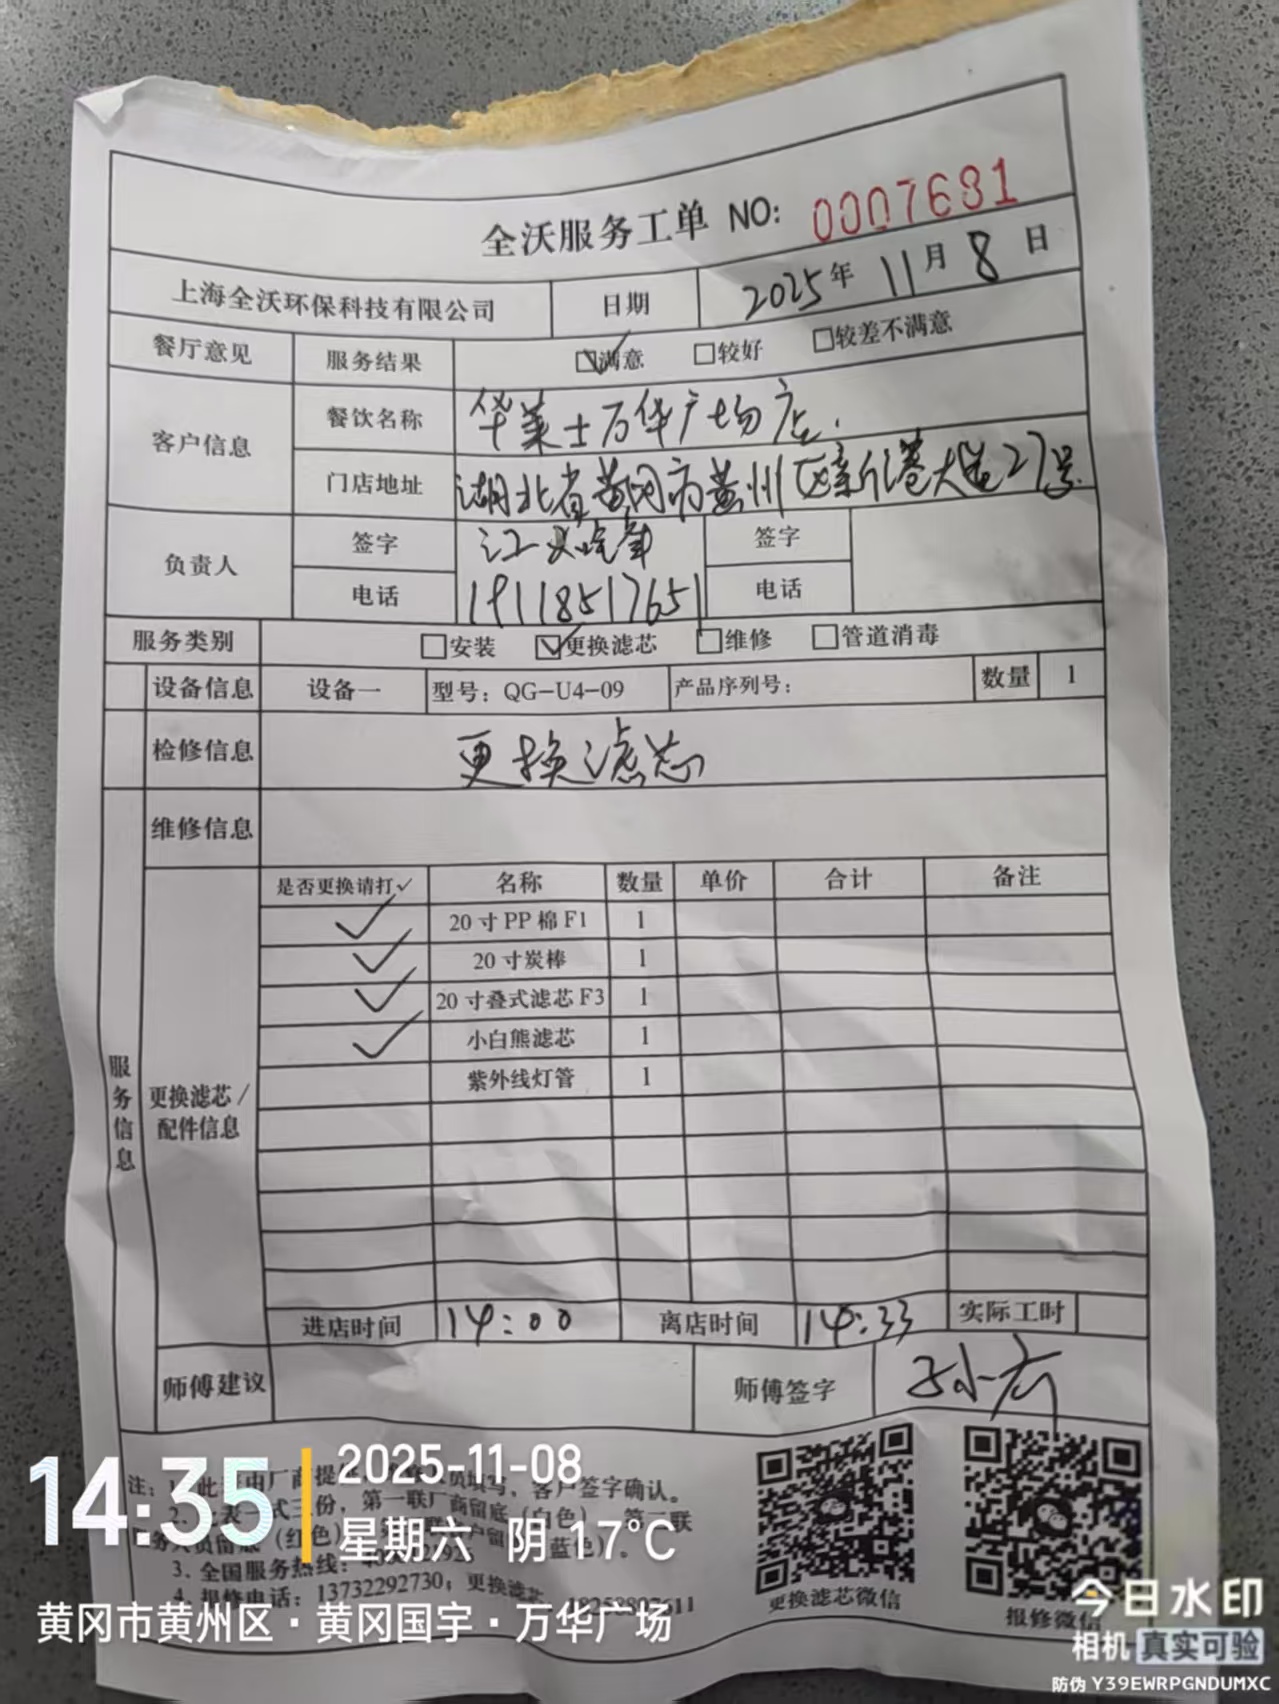 全沃服务工单 NO: 0007681
上海全沃环保科技有限公司 日期 2025年 11月 8日
餐厅意见 服务结果 ☑满意 □较好 □较差不满意
客户信息 餐饮名称 华莱士万华广场店.
门店地址 湖北省黄冈市黄州区新港大道27号
负责人 签字 江 签字
电话 19118517651 电话
服务类别 □安装 ☑更换滤芯 □维修 □管道消毒
设备信息 设备一 型号：QG-U4-09 产品序列号： 数量 1
检修信息 更换滤芯
维修信息
服务信息
更换滤芯/
配件信息
是否更换请打✓ 名称 数量 单价 合计 备注
✓ 20寸PP棉F1 1
✓ 20寸炭棒 1
✓ 20寸叠式滤芯F3 1
✓ 小白熊滤芯 1
紫外线灯管 1
进店时间 14:00 离店时间 14:33 实际工时
师傅建议 师傅签字 孙
注：1. 此表由厂商提 填写，客户签字确认。
2. 此表一式三份，第一联厂商留底（白色），第二联
留底（红色） 户留 蓝色）。
3. 全国服务热线：
4. 报修电话：13732292730；更换滤芯
更换滤芯微信
报修微信
14:35
2025-11-08
星期六 阴 17°C
黄冈市黄州区·黄冈国宇·万华广场
今日水印
相机 真实可验
防伪 Y39EWRPGNDUMXC